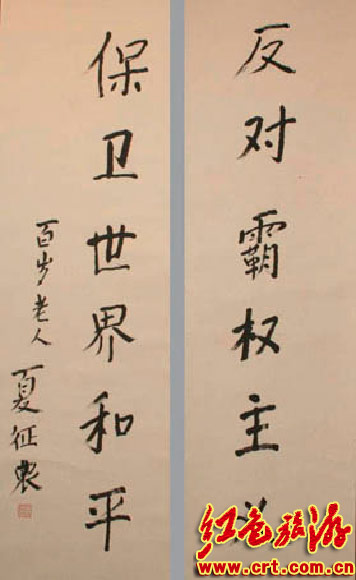 反对霸权主义
保卫世界和平
百岁老人
夏征农
红色旅游
www.crt.com.cn